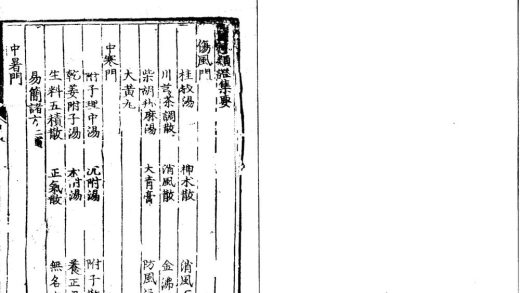 類證集要
傷風門
桂枝湯 神朮散 消風
川芎茶調散 消風散 金沸
柴胡升麻湯 大青膏 防風
大黃丸
中寒門
附子理中湯 沉附湯 附子
乾姜附子湯 朮附湯 養正
生料五積散 正氣散 無名
易簡諸方
中暑門